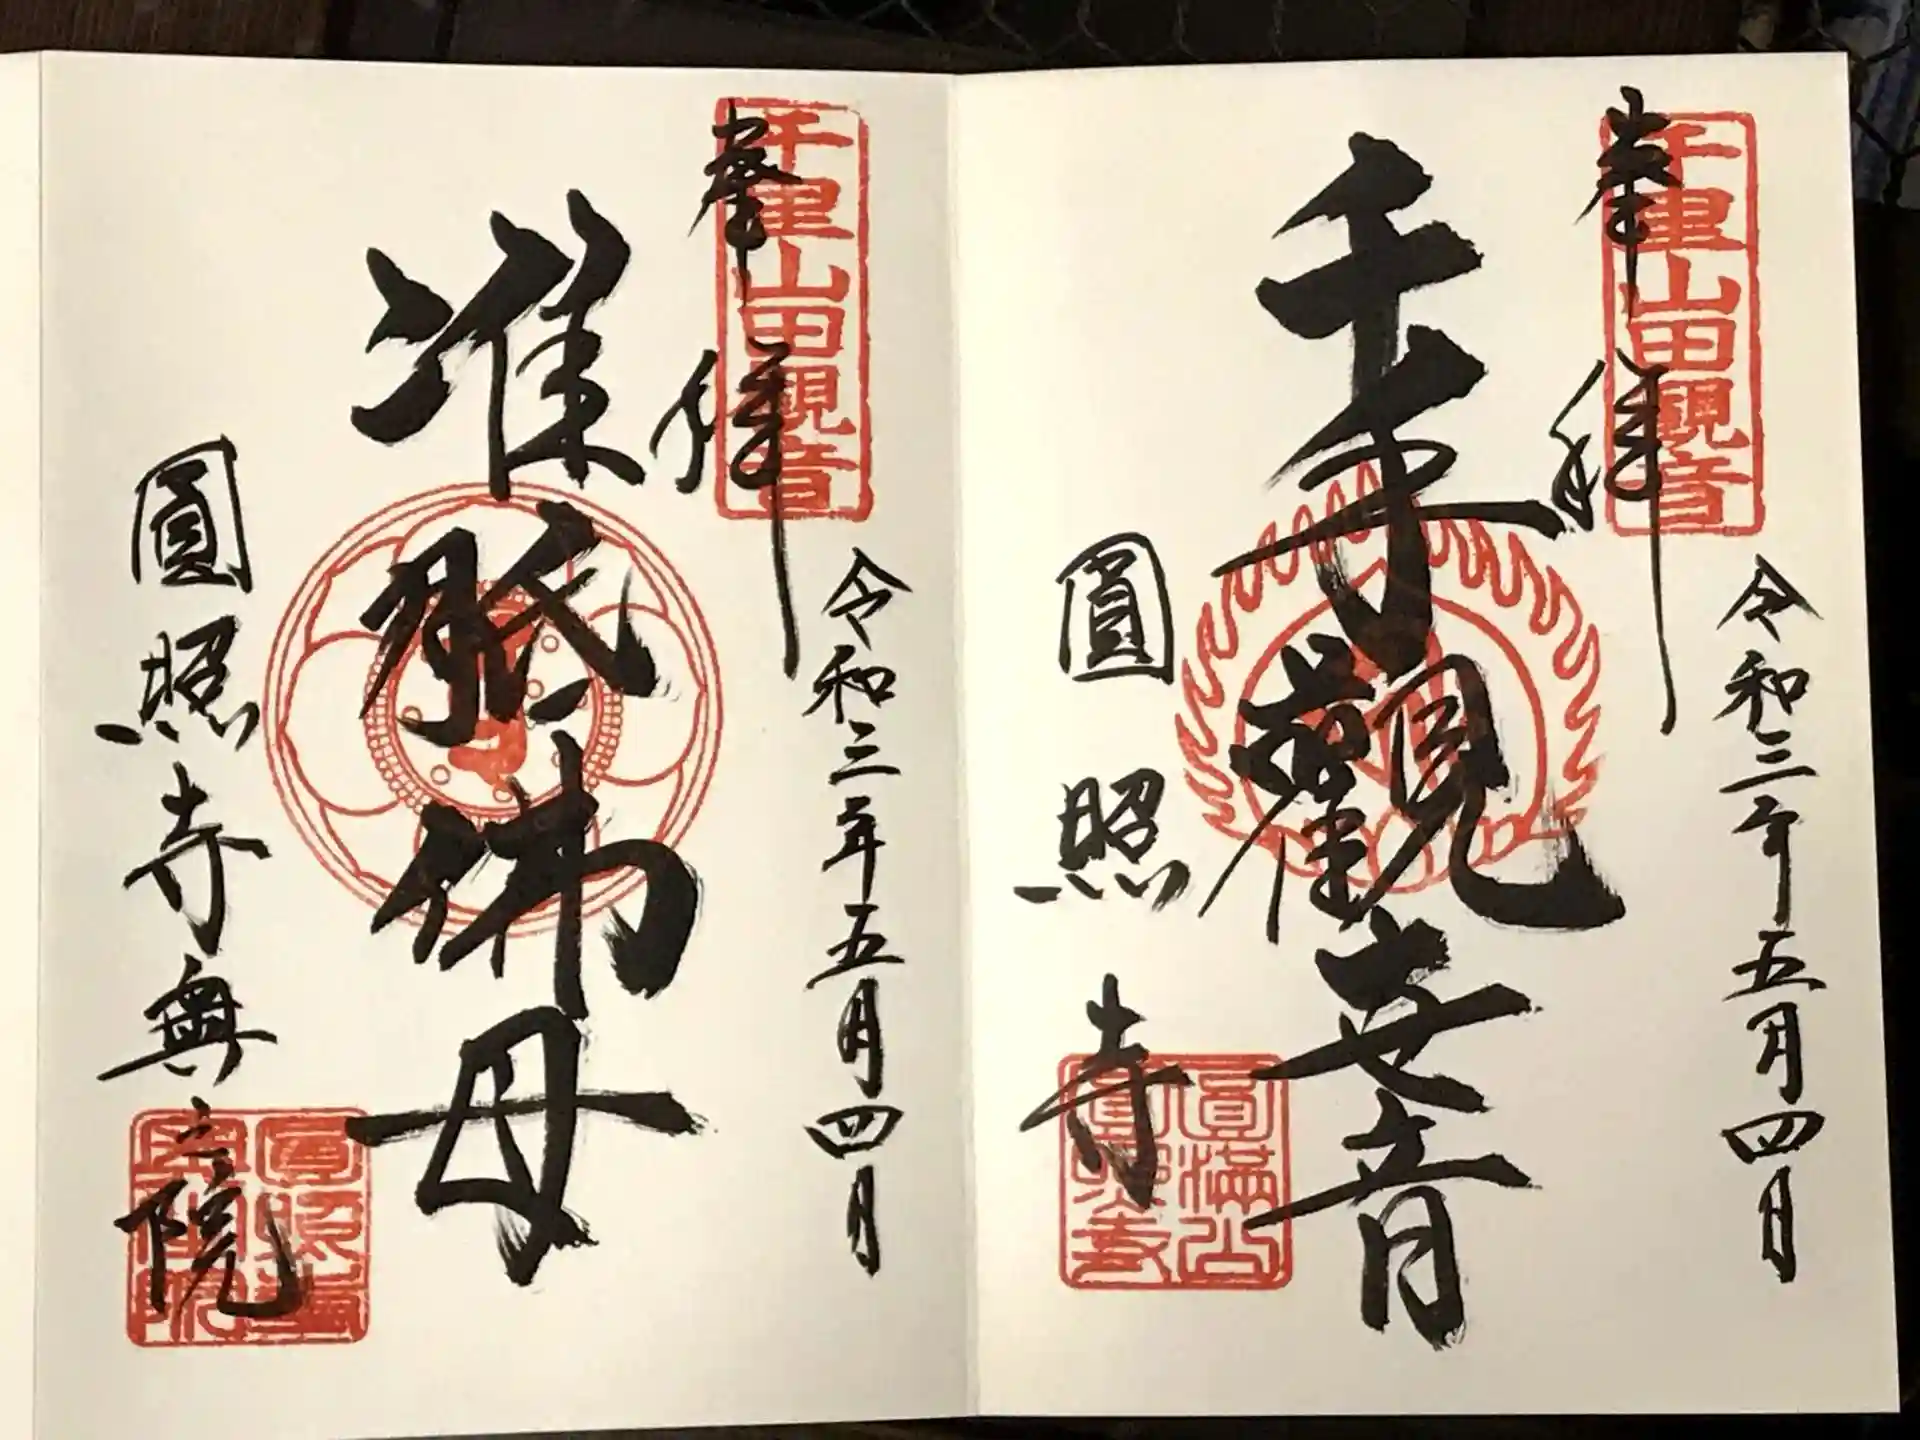 奉拝
千里山田観音
令和三年五月四日
千手觀世音
圓照寺
圓満山
圓照寺
奉拝
千里山田観音
令和三年五月四日
准胝佛母
圓照寺奥之院
圓照寺
奥之院